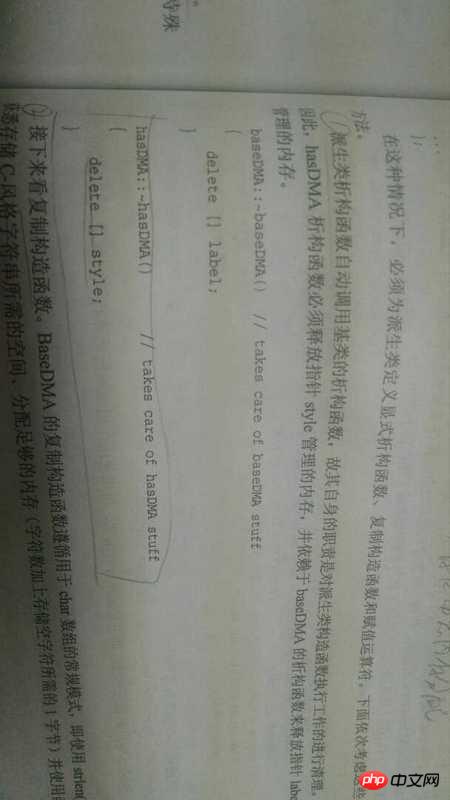 特殊
};
在这种情况下，必须为派生类定义显式析构函数、复制构造函数和赋值运算符。下面依次考虑
方法。
派生类析构函数自动调用基类的析构函数，故其自身的职责是对派生类构造函数执行工作的进行清理。
因此，hasDMA 析构函数必须释放指针 style 管理的内存，并依赖于 baseDMA 的析构函数来释放指针 label
管理的内存。
baseDMA::~baseDMA() // takes care of baseDMA stuff
{
delete [] label;
}
hasDMA::~hasDMA() // takes care of hasDMA stuff
{
delete [] style;
}
接下来看复制构造函数。BaseDMA 的复制构造函数遵循用于 char 数组的常规模式，即使用 strlen(
存储 C-风格字符串所需的空间、分配足够的内存（字符数加上存储空字符所需的 1 字节）并使用
php 中文网